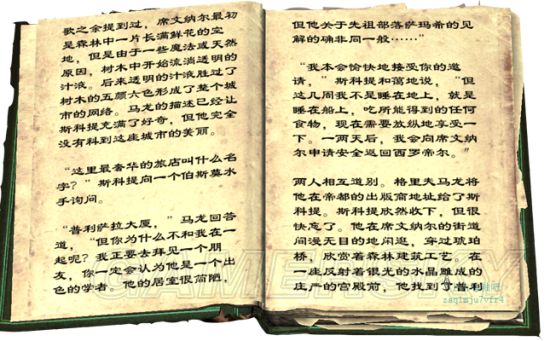 歌之余提到过，席文纳尔最初
是森林中一片长满鲜花的空
地，但是由于一些魔法或天然
原因，树木中开始流淌透明的
汁液。后来透明的汁液胜过了
树木的五颜六色形成了整个城
市的网络。马龙的描述已经让
斯科提充满了好奇，但他完全
没有料到这座城市的美丽。
“这里最奢华的旅店叫什么名
字？”斯科提向一个伯斯莫水
手询问。
“普利萨拉大厦，”马龙回答
道，“但你为什么不和我在一
起呢？我正要去拜见一个朋
友，你一定会认为他是一个出
色的学者。他的居室很简陋，
但他关于先祖部落萨玛希的见
解的确非同一般……”
“我本会愉快地接受你的邀
请，”斯科提和蔼地说，“但
这几周我不是睡在地上，就是
睡在船上，吃所能得到的任何
食物，现在需要放纵地享受一
下。一两天后，我会向席文纳
尔申请安全返回西罗帝尔。”
两人相互道别。格里夫马龙将
他在帝都的出版商地址给了斯
科提。斯科提欣然收下，但很
快忘了。他在席文纳尔的街道
间漫无目的地闲逛，穿过琥珀
桥，欣赏着森林建筑工艺。在
一座反射着银光的水晶雕成的
庄严的宫殿前，他找到了普利
GAMERSKY
zaq1mju7vfr4